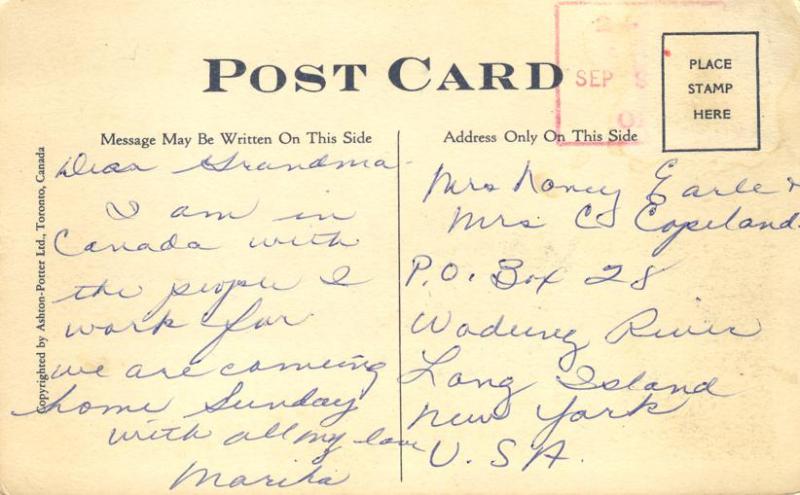 POST CARD
SEP
PLACE
STAMP
HERE
Message May Be Written On This Side
Address Only On This Side
Copyrighted by Ashton-Potter Ltd., Toronto, Canada
Dear Grandma
I am in
Canada with
the people I
work for
we are comeing
home Sunday
with all my love
Mrs Nancy Earle &
Mrs C Copeland
P.O. Box 28
Wading River
Long Island
New York
U.S.A.